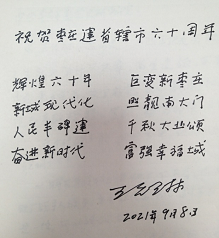 祝贺枣庄建省辖市六十周年
辉煌六十年 巨变新枣庄
新城现代化 照靓南大门
人民丰碑建 千秋大业颂
奋进新时代 富强幸福城
2021年9月8日